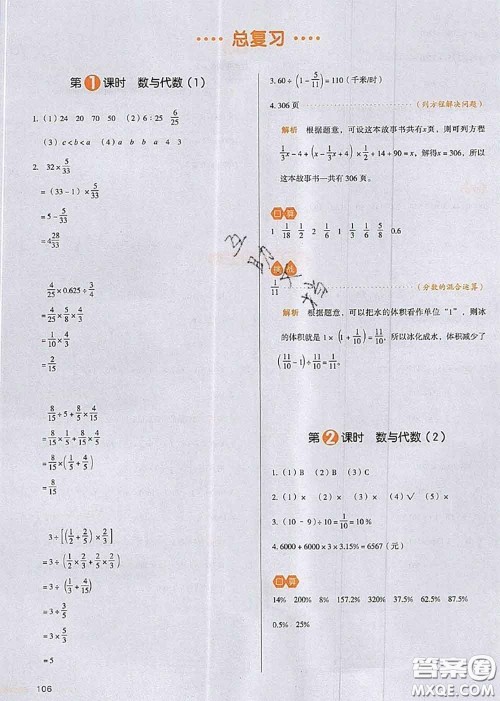 总复习
第1课时 数与代数（1）
1. (1) 24 20 70 50 (2) 6∶25 6/25
(3) c<b<a (4) a b b a 4 3
2. 32×5/33
=(33−1)×5/33
=5−5/33
=4 28/33
4/25×0.625÷3/4
=4/25×5/8×4/3
=1/10×4/3
=2/15
8/15÷5+8/15×4/5
=8/15×1/5+8/15×4/5
=8/15×(1/5+4/5)
=8/15
3÷[(1/2+2/5)×2/3]
=3÷(1/2×2/3+2/5×2/3)
=3÷(1/3+4/15)
=3÷3/5
=3×5/3
=5
3. 60÷(1−5/11)=110（千米/时）
4. 306页（列方程解决问题）
解析 根据题意，可设这本故事书共有x页，则可列方程
1/3x−4+(x−1/3x+4)×1/2+14+90=x，解得x=306，所以
这本故事书一共有306页。
口算
1 1/18 1/2 2 1/6 1 3/5 1/6 5/8 0.6
挑战
1/11（分数的混合运算）
解析 根据题意，可以把水的体积看作单位“1”，则冰
的体积就是1×(1+1/10)=11/10。所以冰化成水，体积减少了
(11/10−1)÷11/10=1/11。
第2课时 数与代数（2）
1. (1) B (2) B (3) C
2. (1) × (2) × (3) × (4) √ (5) ×
3. (10−9)÷10=1/10=10%
4. 6000+6000×3×3.15%=6567（元）
口算
14% 200% 8% 157.2% 320% 37.5% 62.5% 87.5%
0.5% 25%
106
答案圈
MXQE.COM